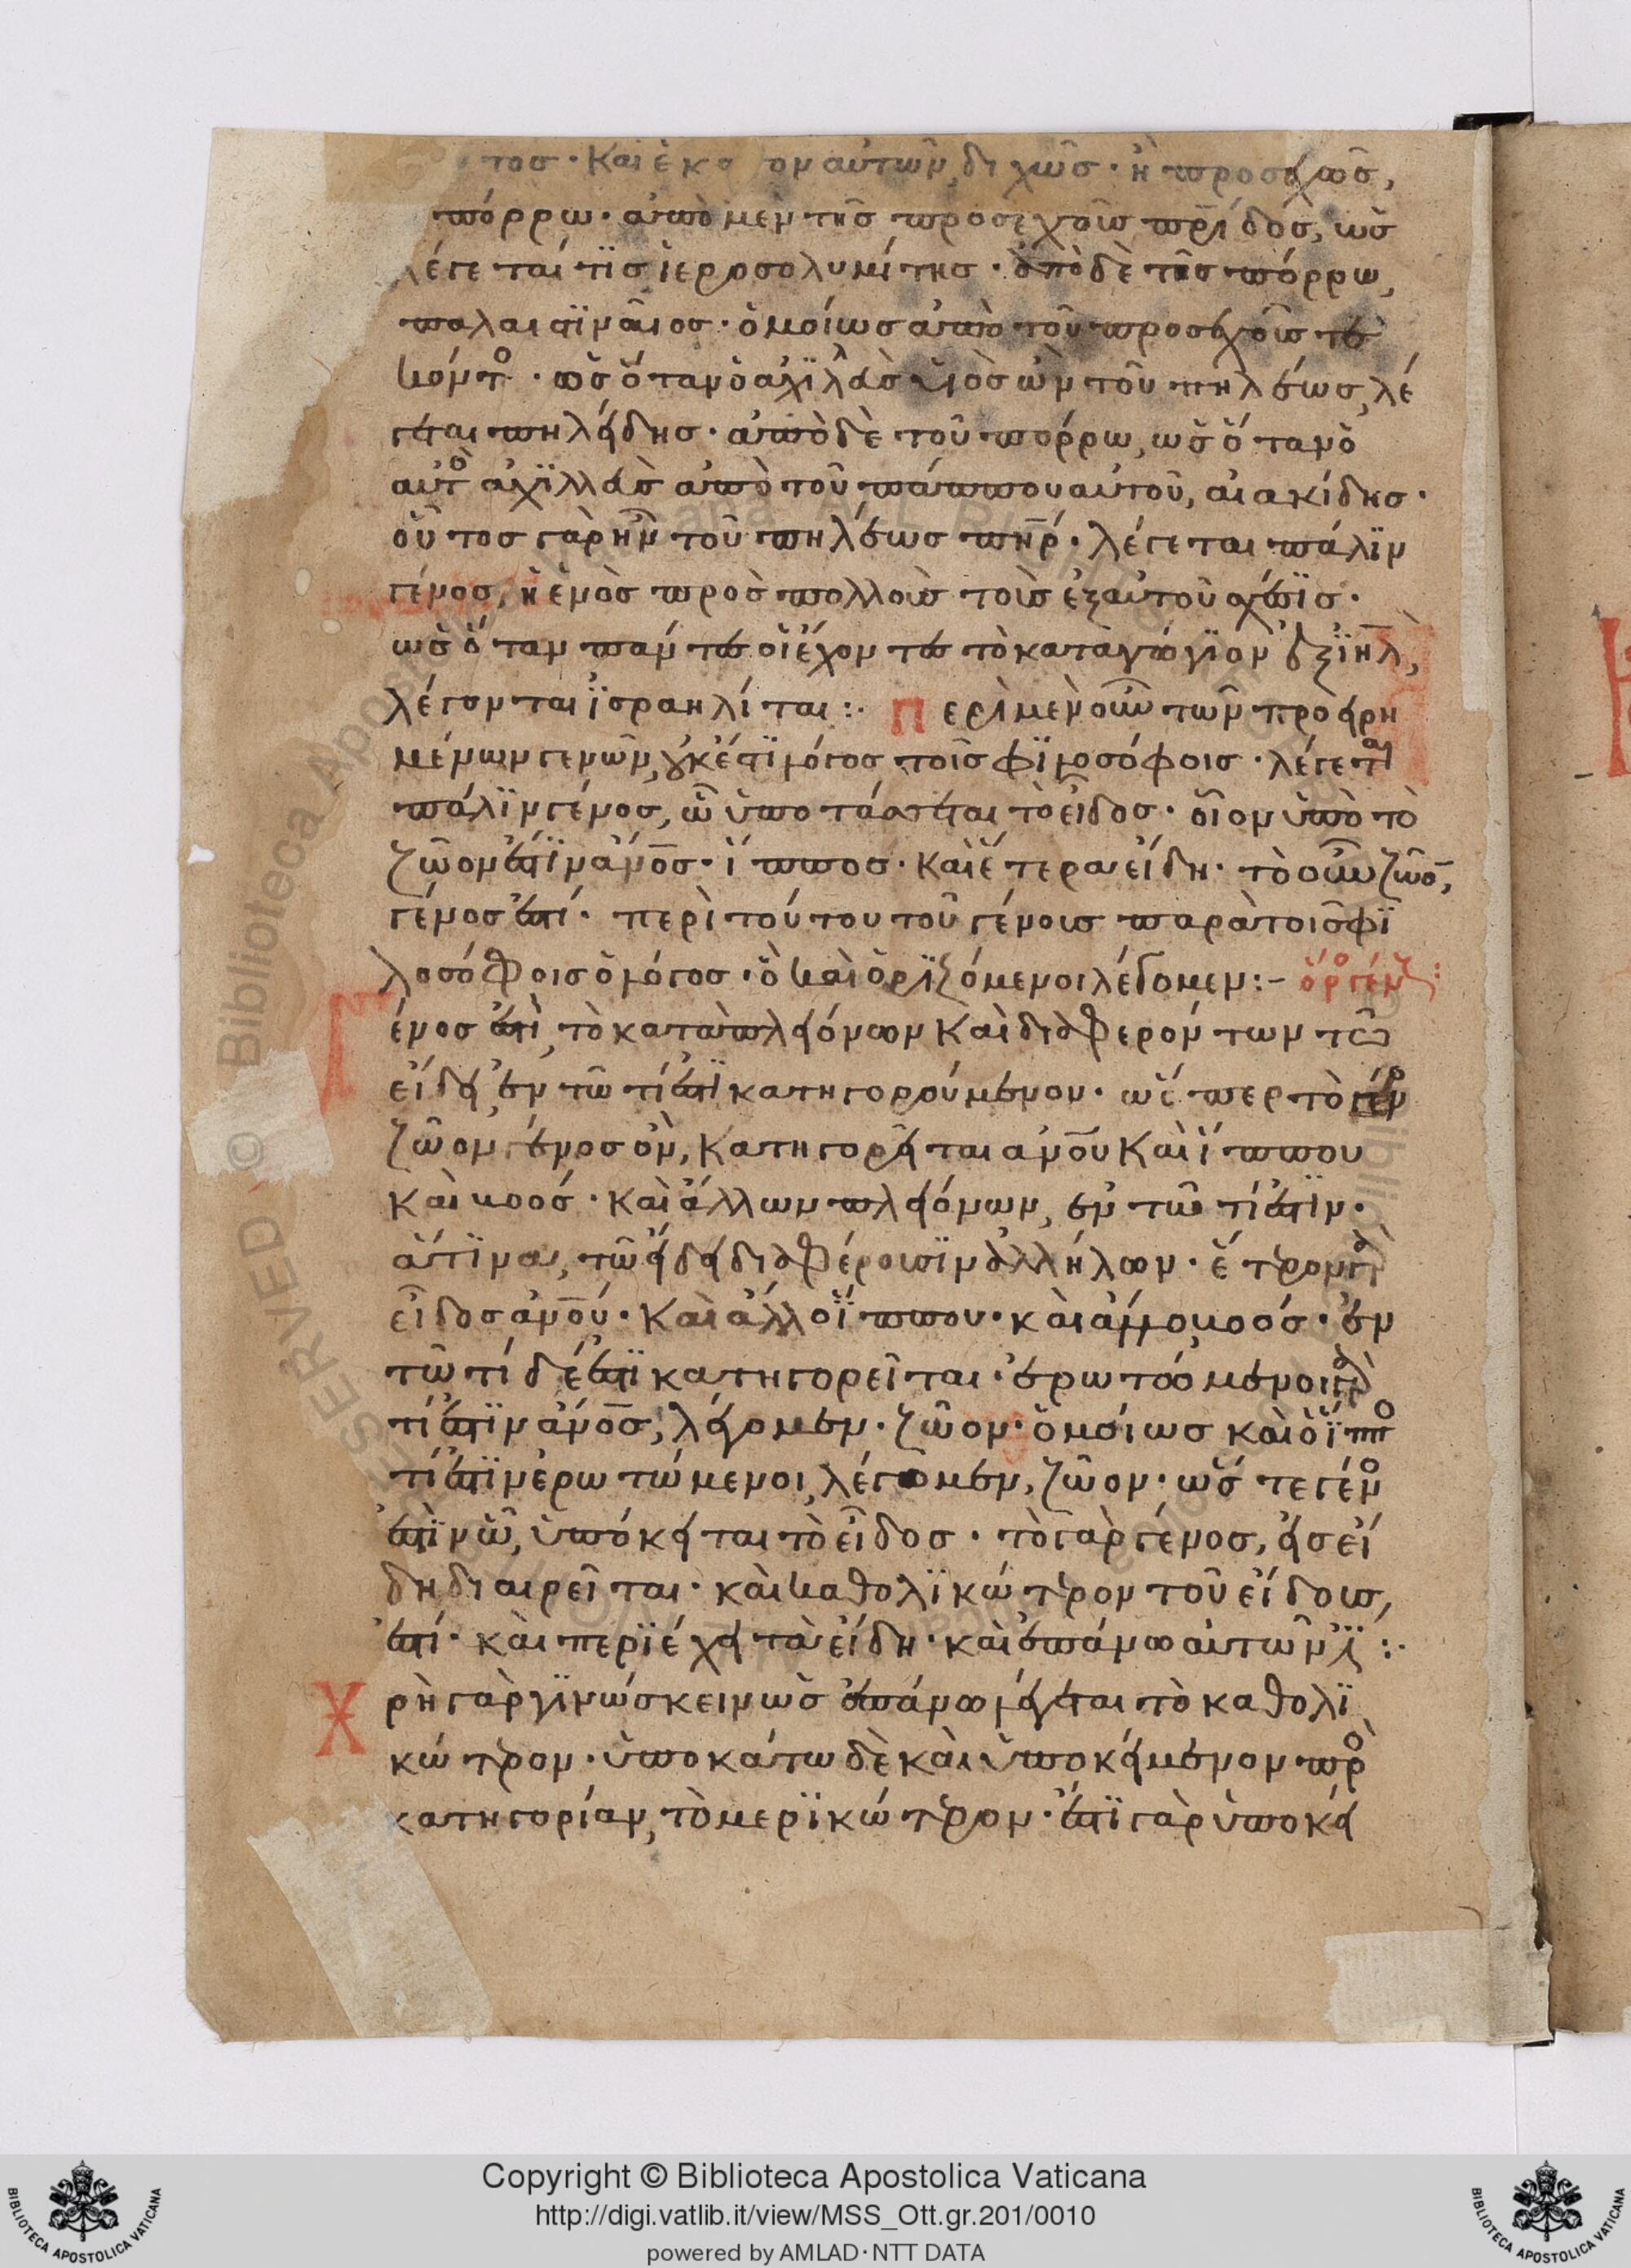 τος· καὶ ἑκα ον αὐτῶν, διχῶς· ἢ προσεχῶς,
πόρρω· ἀπὸ μὲν τῆς προσεχοῦς πρίδος, ὡς
λέγεταί τϊς ἱεροσολυμίτης· ἀπὸ δὲ τῆς πόρρω,
παλαιστϊναῖος· ὁμοίως ἀπὸ τοῦ προσεχοῦς τε
κόντο· ὡς ὅταν ὁ ἀχϊλλεὺς υἱὸς ὢν τοῦ πηλέως, λέ
γεται πηλείδης· ἀπὸ δὲ τοῦ πόρρω, ὡς ὅταν ὁ
αὐτο ἀχϊλλεὺς ἀπὸ τοῦ πάππου αὐτοῦ, αἰακίδης·
οὗτος γὰρ ἦν τοῦ πηλέως πηρ· λέγεται πάλϊν
γένος, ἡ ἑνὸς πρὸς πολλοὺς τοὺς ἐξ αὐτοῦ σχέσϊς·
ὡς ὅταν πάντες οἱ ἔχοντες τὸ καταγώγϊον ἐξ ϊηλ,
λέγονται ϊσραηλίται:· Περὶ μὲν οὖν τῶν προειρη
μένων γενῶν, οὐκ ἔστϊ λόγος τοῖς φϊλοσόφοις· λέγεται
πάλϊν γένος, ὧ ὑποτάσσεται τὸ εἶδος· οἷον ὑπὸ τὸ
ζῶον ἐστϊν ἀνος· ἵππος· καὶ ἕτερα εἴδη· τὸ οὖν ζῶο,
γένος ἐστί· περὶ τούτου τοῦ γένους παρὰ τοῖς φϊ
λοσόφοις ὁ λόγος· ὃ καὶ ὁρϊζόμενοι λέγομεν:– ὅρο γένους:
Γένος ἐστὶ, τὸ κατὰ πλειόνων καὶ διαφερόντων τῶ
εἴδει, ἐν τῶ τί ἐστϊ κατηγορούμενον· ὥσπερ τὸ γένο
ζῶον γένος ὂν, κατηγορεῖται ἀνου καὶ ἵππου
καὶ κυνός· καὶ ἄλλων πλειόνων, ἐν τῶ τί ἐστϊν·
ἅτϊνα, τῶ εἴδει διαφέρουσϊν ἀλλήλων· ἕτερον γὰρ
εἶδος ἀνου· καὶ ἄλλο ἵππου· καὶ ἄλλο κυνός· ἐν
τῶ τί δέ ἐστϊ κατηγορεῖται· ἐρωτώμενοι γὰρ
τί ἐστϊν ἀνος, λέγομεν· ζῶον· ὁμοίως καὶ ὁ ἵππο
τί ἐστϊν ἐρωτώμενοι, λέγομεν, ζῶον· ὥστε γένο
ἐστὶν ὧ, ὑπόκειται τὸ εἶδος· τὸ γὰρ γένος, εἰς εἴ
δη διαιρεῖται· καὶ καθολϊκώτερον τοῦ εἴδους,
ἐστί· καὶ περϊέχει τὰ εἴδη· καὶ ἐπάνω αὐτῶν ἐστι:·
Χρὴ γὰρ γϊνώσκειν ὡς ἐπάνω λέγεται τὸ καθολϊ
κώτερον· ὑποκάτω δὲ καὶ ὑποκείμενον πρὸ
κατηγορίαν, τὸ μερϊκώτερον· ἔστϊ γὰρ ὑποκεί
Copyright © Biblioteca Apostolica Vaticana
http://digi.vatlib.it/view/MSS_Ott.gr.201/0010
powered by AMLAD·NTT DATA
BIBLIOTECA APOSTOLICA VATICANA
BIBLIOTECA APOSTOLICA VATICANA